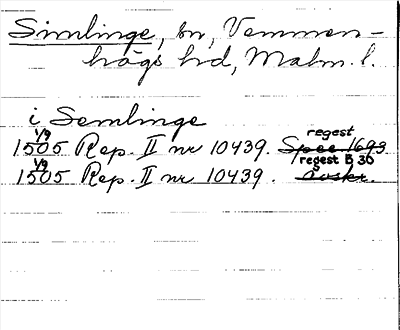 Simlinge, sn, Vemmen-
högs hd, Malm. l.
i Semlinge
1/9 regest
1505 Rep. II nr 10439. Spec 1693
1/9 regest B 30
1505 Rep. II nr 10439.